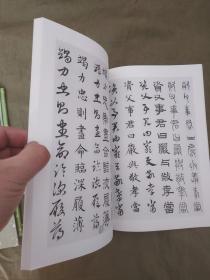 資父事君曰嚴與敬孝當
資父事君曰嚴與敬孝當
資父事君曰嚴與敬孝當
資父事君曰嚴與敬孝當
竭力忠則盡命臨深履薄
竭力忠則盡命臨深履薄
竭力忠則盡命臨深履薄